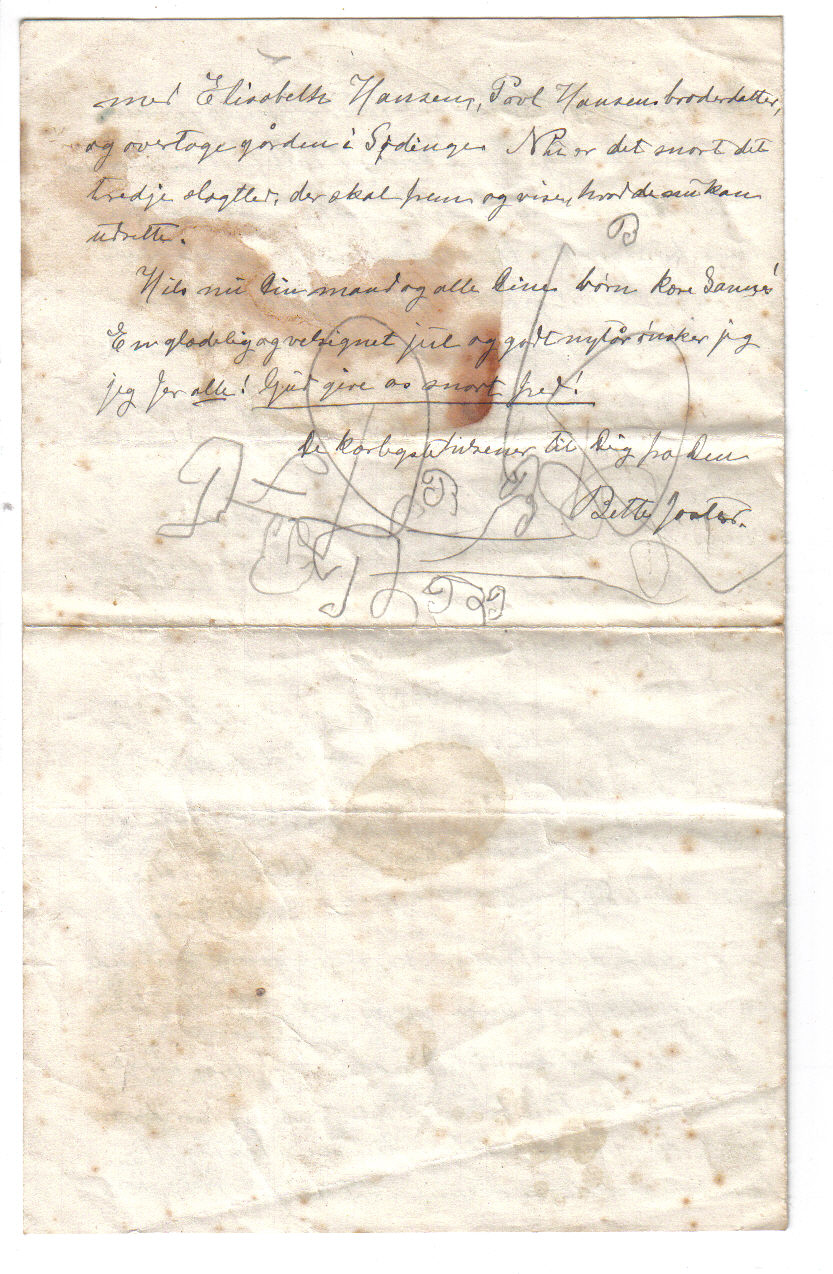 med Elisabeth Hansen, Povl Hansens broderdatter,
og overtage gården i Sødinge. Nu er det snart det
tredje slægtled, der skal frem og vise, hvad de nu kan
udrette.
Hils nu din mand og alle dine børn kære
En glædelig og velsignet jul og godt nytår ønsker jeg
jeg Jer alle! Gud give os snart fred!
De kærligste hilsener til dig fra din
Bette
B
B
B
B
B